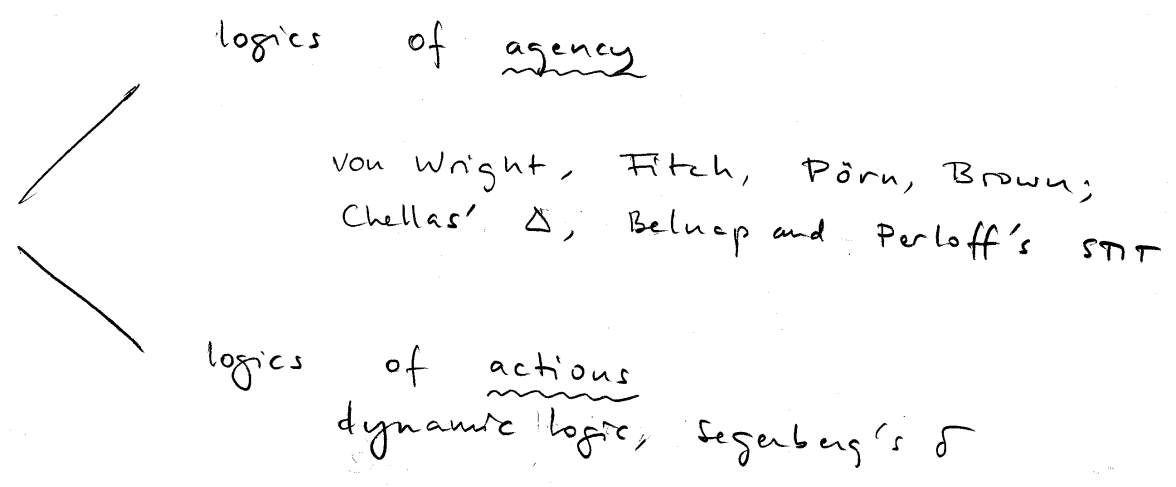 logics of agency
von Wright, Fitch, Pörn, Brown;
Chellas' Δ, Belnap and Perloff's STIT
logics of actions
dynamic logic, Segerberg's δ